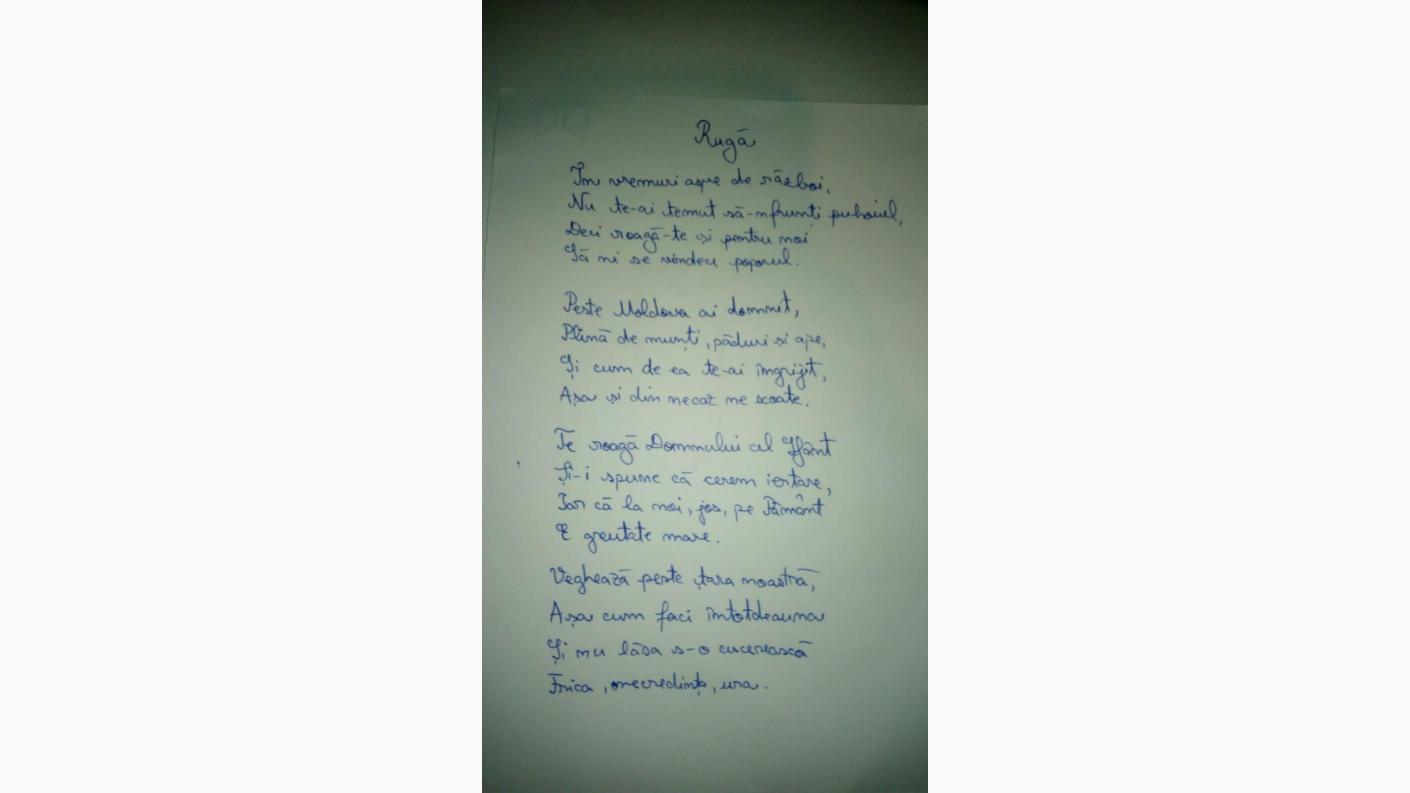 Rugă
În vremuri aspre de război,
Nu te-ai temut să-nfrunți puhoiul,
Deci roagă-te și pentru noi
Să ni se vindece poporul.
Peste Moldova ai domnit,
Plină de munți, păduri și ape,
Și cum de ea te-ai îngrijit,
Așa și din necaz ne scoate.
Te roagă Domnului cel Sfânt
Și-i spune că cerem iertare,
Iar că la noi, jos, pe Pământ
E greutate mare.
Veghează peste țara noastră,
Așa cum faci întotdeauna
Și nu lăsa s-o cucerească
Frica, necredința, ura.